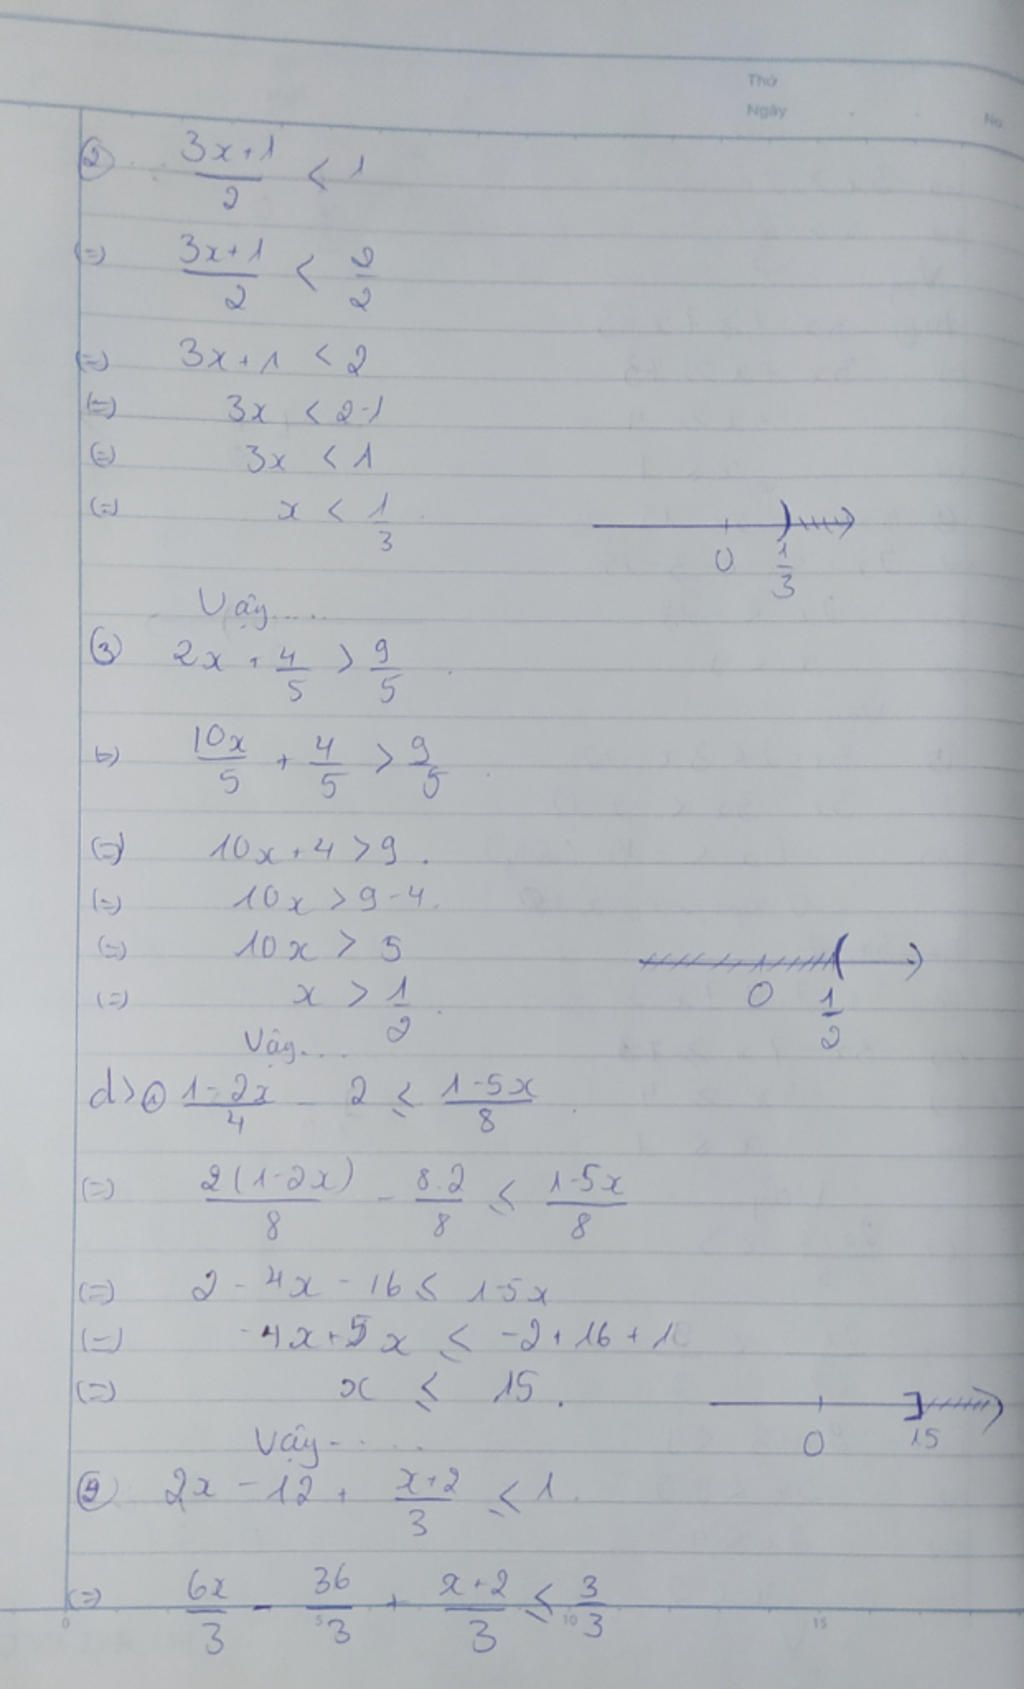 Thứ
Ngày No
② (3x+1)/2 < 1
(=) (3x+1)/2 < 2/2
(=) 3x+1 < 2
(=) 3x < 2-1
(=) 3x < 1
(=) x < 1/3
0 1/3
Vậy....
③ 2x + 4/5 > 9/5
(=) 10x/5 + 4/5 > 9/5
(=) 10x+4 > 9.
(=) 10x > 9-4.
(=) 10x > 5
(=) x > 1/2.
0 1/2
Vậy...
d> ① (1-2x)/4 - 2 ≤ (1-5x)/8
(=) 2(1-2x)/8 - 8.2/8 ≤ (1-5x)/8
(=) 2-4x-16 ≤ 1-5x
(=) -4x+5x ≤ -2+16+1
(=) x ≤ 15.
0 15
Vậy-....
② 2x - 12 + (x+2)/3 ≤ 1.
(=) 6x/3 - 36/3 + (x+2)/3 ≤ 3/3
0 5 10 15